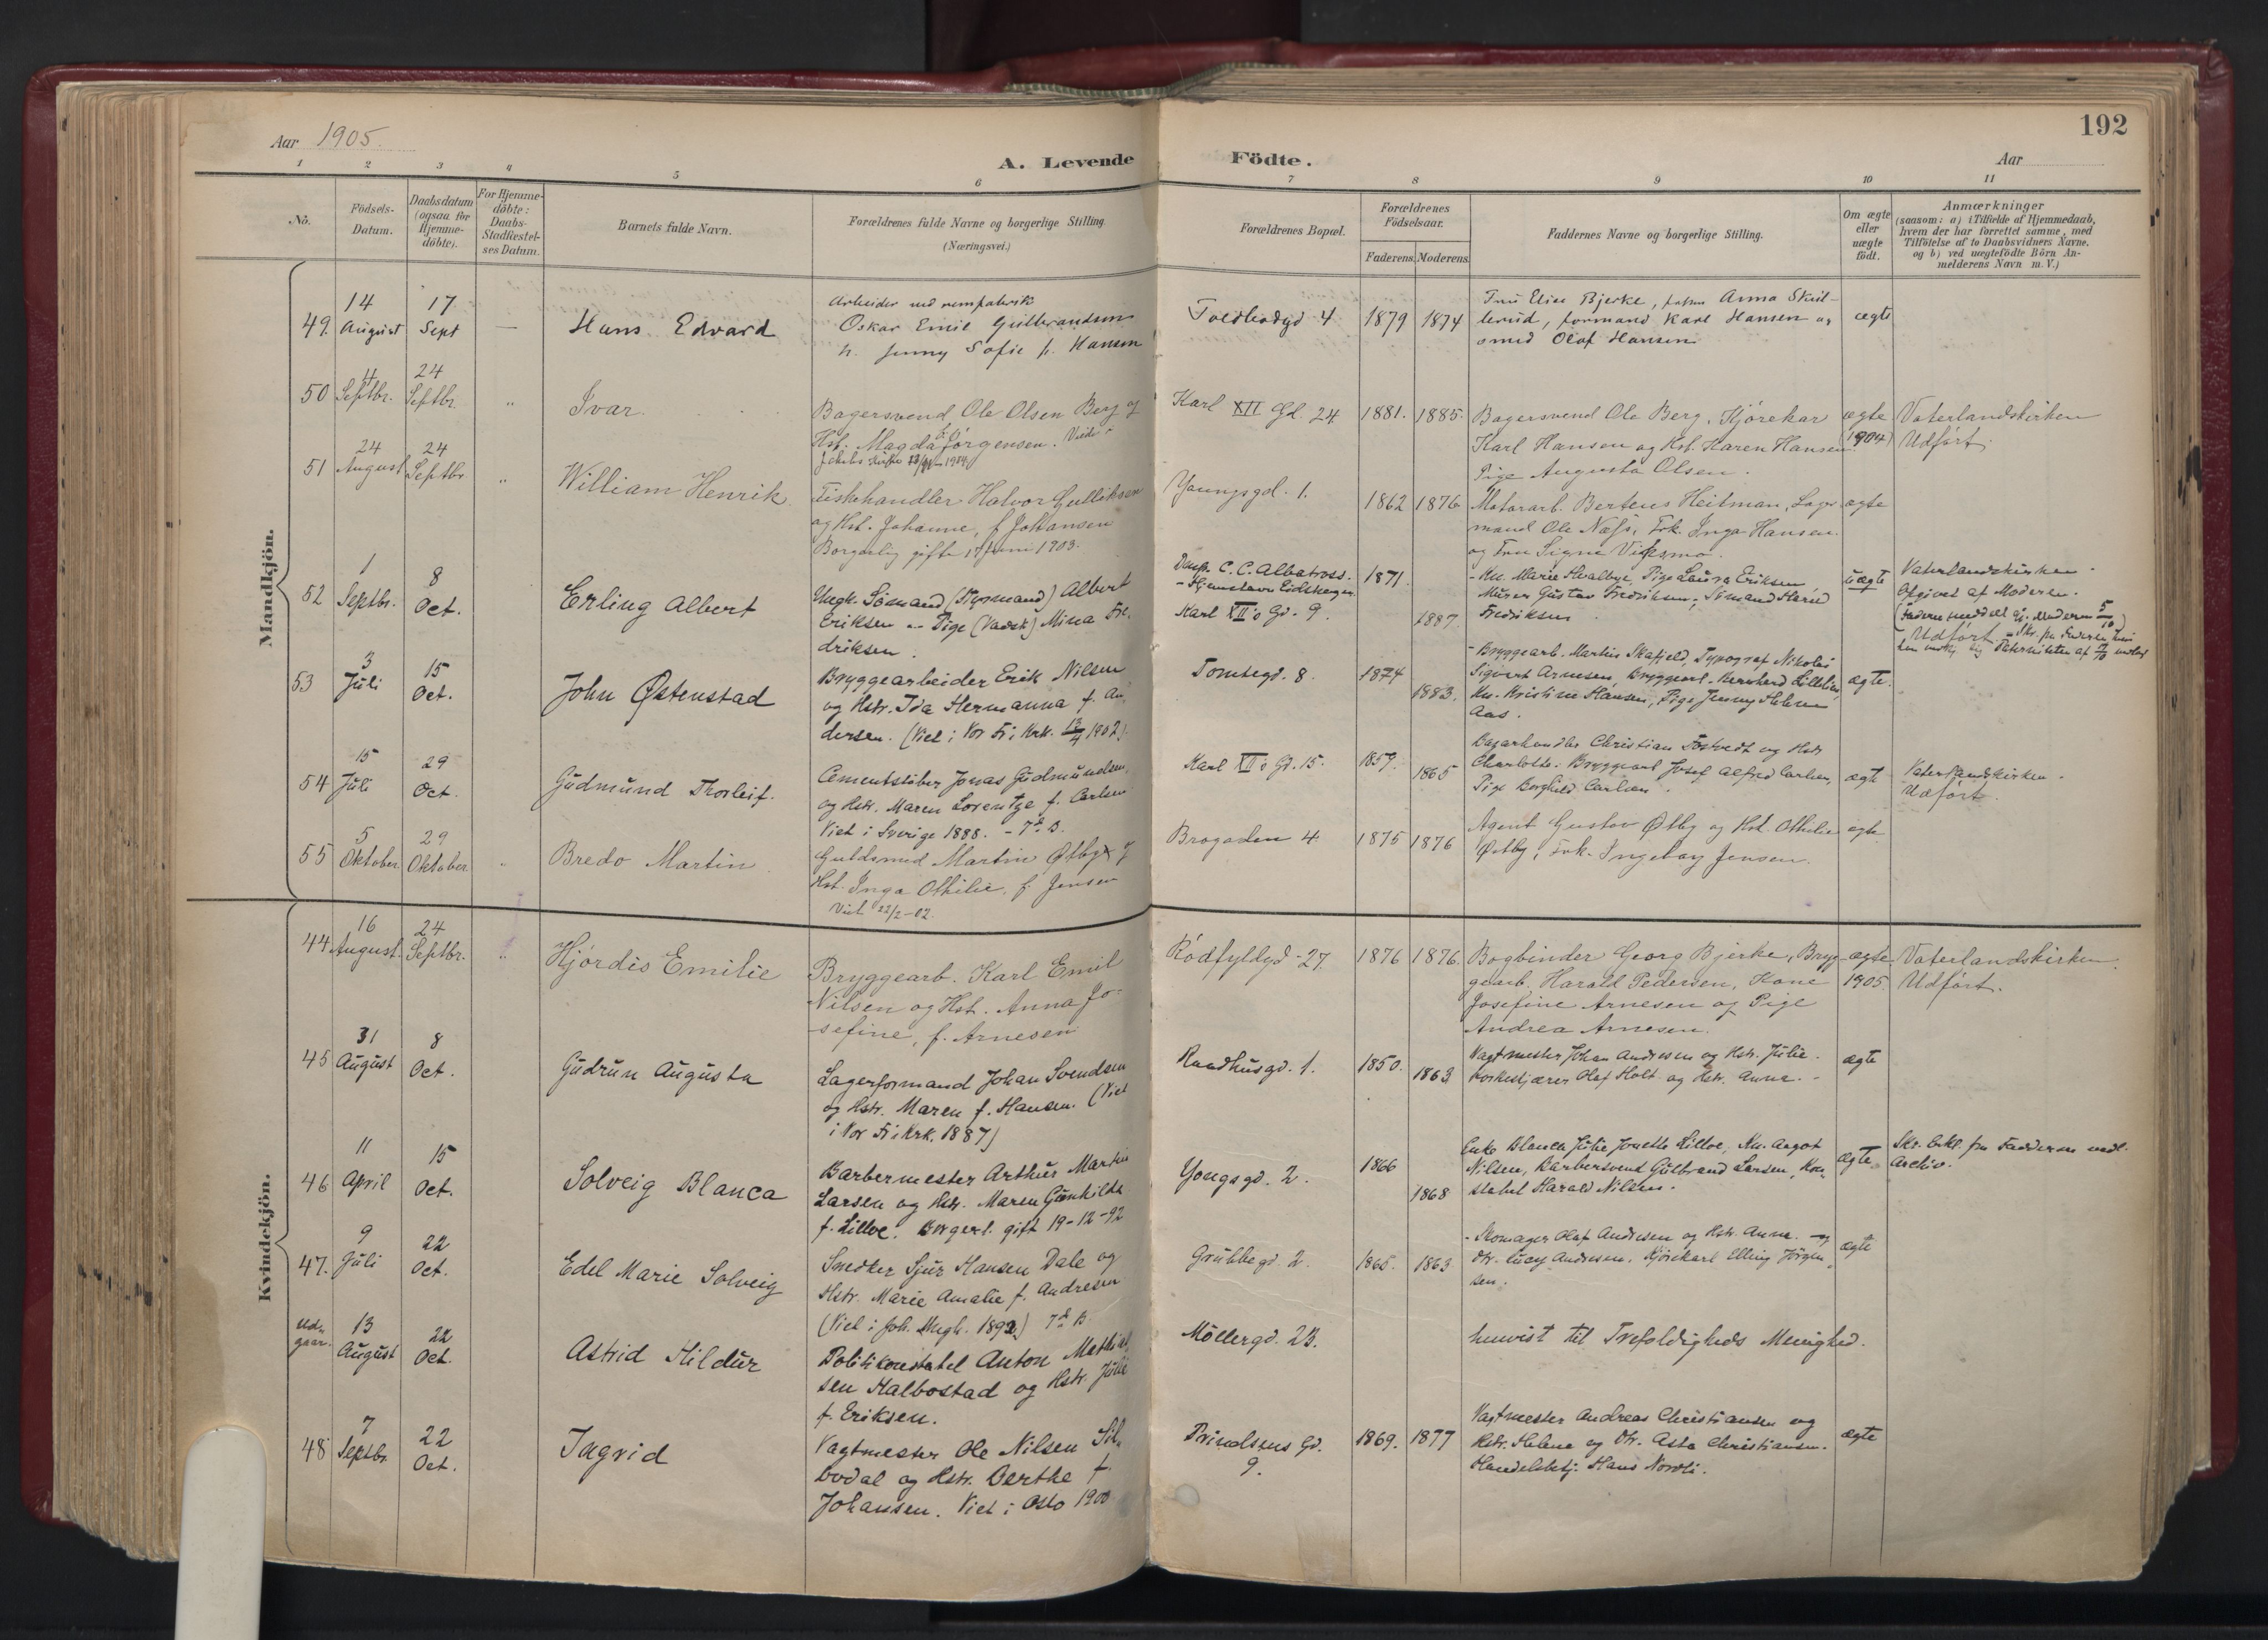 192
Aar 1905.
A. Levende Födte.
Aar
1 2 3 4 5 6 7 8 9 10 11
No.
Födsels-
Datum.
Daabsdatum
(ogsaa for
Hjemme-
döbte).
For Hjemme-
döbte:
Daabs-
Stadfæstel-
ses Datum.
Barnets fulde Navn.
Forældrenes fulde Navne og borgerlige Stilling.
(Næringsvei.)
Forældrenes Bopæl.
Forældrenes
Födselsaar.
Faderens. Moderens.
Faddernes Navne og borgerlige Stilling.
Om ægte
eller
uægte
födt.
Anmærkninger
(saasom: a) i Tilfælde af Hjemmedaab,
hvem der har forrettet samme, med
Tilföielse af to Daabsvidners Navne.
og b) ved uægtefödte Börn An-
melderens Navn m. V.)
Mandkjön.
49. 14 August 17 Sept — Hans Edvard
Arbeider ved
Oskar Emil Gulbrandsen
h. Jenny Sofie f. Hansen
Toldbodgd 4 1879 1874
Fru Elise Bjerke, Anna Skul-
lerud, formand Karl Hansen og
smed Olaf Hansen
ægte
50 4 Septbr. 24 Septbr. " Ivar.
Bagersvend Ole Olsen Berg og
Hst. Magda f. Jörgensen. Viede i
Jakobs Kirke 1904.
Karl XII Gd. 24 1881. 1885.
Bagersvend Ole Berg, Kjörekar
Karl Hansen og Hst. Karen Hansen
Pige Augusta Olsen.
ægte
(1904)
Vaterlandskirken
Udfört.
51 24 August 24 Septbr. " William Henrik.
Fiskehandler Halvor Gulliksen
og Hst. Johanne, f. Johansen
Borgerlig gifte 17 Juni 1903.
Youngsgd. 1. 1862 1876
Motorarb. Bertens Heitman, Lager
mand Ole Næss, Frk. Inga Hansen.
og Fru Signe Viksmo.
ægte
52 1 Septbr. 8 Oct. Erling Albert
Ungk. Sömand (Styrmand) Albert
Eriksen og Pige (Vadsk) Mina Fre-
driksen.
Dmsk. C. C. Albatross.
- Hjemstavn Eidsberg
Karl XII's Gd. 9. 1871. 1887.
- Kn. Marie Hvalbye, Pige Laura Eriksen
Murer Gustav Fredriksen, Sömand
Fredriksen
uægte
Vaterlandskirken.
Opgivet af Moderen.
Udfört.
53 3 Juli 15 Oct. John Østenstad
Bryggearbeider Erik Nilsen
og Hstr. Ida Hermanna f. An-
dersen. (Viet i Vor Fr: Krk. 13/4 1902)
Tomtegd. 8. 1874 1883.
- Bryggearb. Martin Skafjeld, Typograf Nikolai
Sigvart Arnesen, Bryggearb.
Kn. Kristine Hansen, Pige Jenny Helene
Aas.
ægte.
54 15 Juli 29 Oct. Gudmund Thorleif.
Cementstöber Jonas Gudmundsen,
og Hstr. Maren Lorentze f. Carlsen
Viet i Sverige 1888. - 7d B.
Karl XII's Gd. 15. 1859. 1865
Bazarhandler Christian Tostvedt og Hstr
Charlotte. Bryggearb Josef Alfred Carlsen,
Pige Borghild Carlsen.
ægte
Vaterlandskirken.
Udfört.
55 5 Oktober 29 Oktober " Bredo Martin
Guldsmed Martin Østby og
Hst. Inga Othilie, f. Jensen
Viet 22/2-02.
Brogaden 4. 1875 1876
Agent Gustav Østby og Hst. Othilie
Østby, Frk. Ingeborg Jensen.
ægte
Kvindekjön.
44 16 August. 24 Septbr. " Hjórdis Emilie
Bryggearb. Karl Emil
Nilsen og Hst. Anna Jo-
sefine, f. Arnesen
Rödfyldgd 27. 1876 1876.
Bogbinder Georg Bjerke, Bryg-
gearb. Harald Pedersen, Kone
Josefine Arnesen og Pige
Andrea Arnesen.
ægte
1905.
Vaterlandskirken.
Udfört.
45 31 August 8 Oct. Gudrun Augusta
Lagerformand Johan Svendsen
og Hstr. Maren f. Hansen. (Viet
i Vor Fr: Krk. 1887)
Raadhusgd. 1. 1850. 1863
Vagtmester Johan Andresen og Hstr. Julie.
Korkeskjærer Olaf Holt og Hstr. Anna.
ægte
46 11 April 15 Oct. Solveig Blanca
Barbermester Arthur Martin
Larsen og Hstr. Maren Gunhilda
f. Lilloe. Borgerl. gift 19-12-92
Yongsgd. 2. 1866 1868
Enke Blanca Julie Lilloe, Kn. Aagot
Nilsen, Barbersvend Gulbrand Larsen, Kon-
stabel Harald Nilsen.
ægte.
Skr. Erkl. fra Fadderen vedl.
Archiv.
47. 9 Juli 22 Oct. Edel Marie Solveig
Snedker Sjur Hansen Dale og
Hstr. Marie Amalie f. Andresen
(Viet i Joh. Mngh. 1892) 7d B.
Grubbegd. 2. 1865. 1863
- Skomager Olaf Andresen og Hstr. Anna.
Dtr. Lucy Andresen, Kjörekarl Elling Jörgen-
sen.
ægte
Ud-
gaar. 13 August 22 Oct. Astrid Hildur
Politikonstabel Anton Mathi-
sen Halbostad og Hstr. Julie
f. Eriksen.
Möllergd. 23.
henvist til Trefoldigheds Menighed.
48 7 Septbr. 22 Oct. Ingrid
Vagtmester Ole Nilsen Sil-
bodal og Hstr. Berthe f.
Johansen. Viet i Oslo 1900
Prindsens Gd.
9. 1869. 1877
Vagtmester Andreas Christiansen og
Hstr. Helena og Dtr. Asta Christiansen.
Handelsbetj. Hans Nordli.
ægte